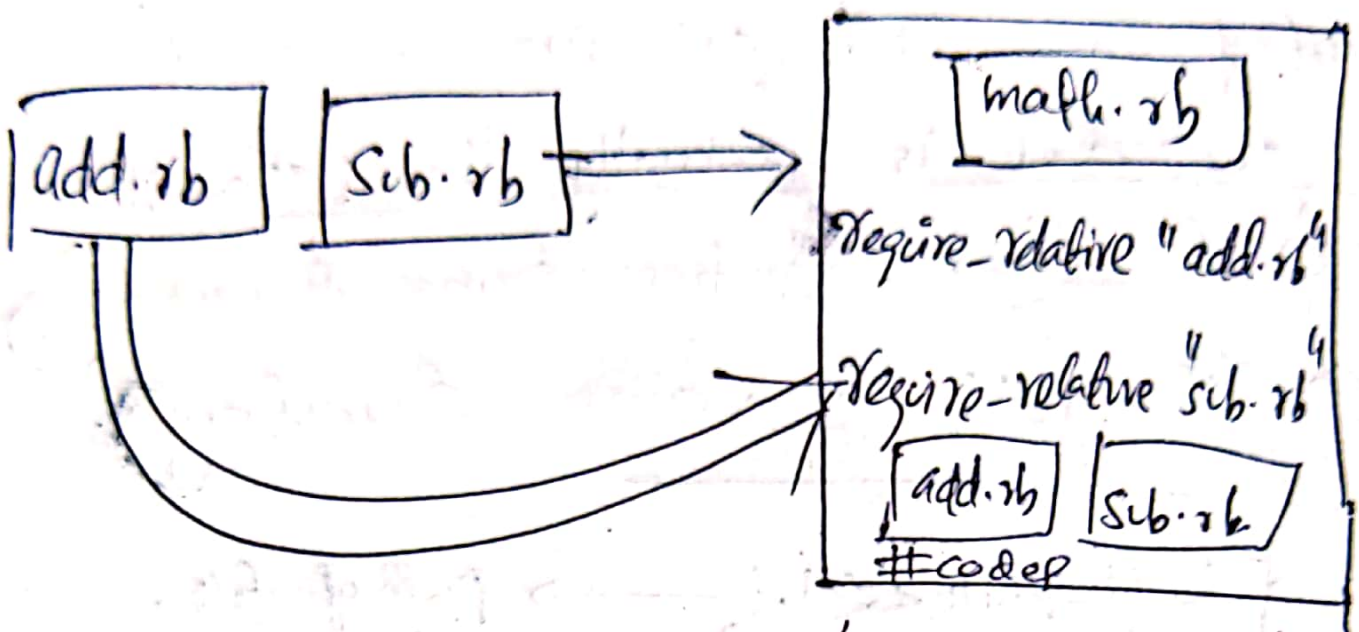 add.rb
sub.rb
math.rb
require_relative "add.rb"
require_relative "sub.rb"
add.rb
sub.rb